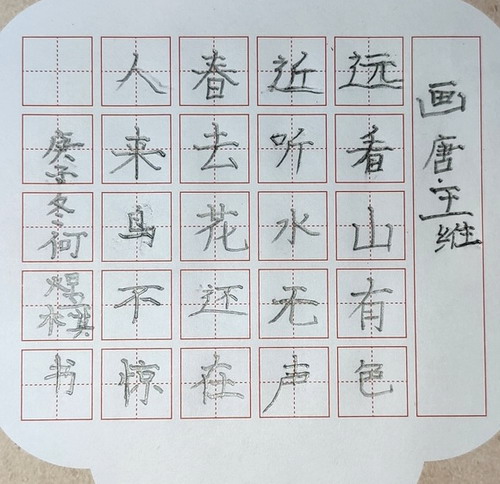 画 唐·王维
远看山有色
近听水无声
春去花还在
人来鸟不惊
庚子冬何棋书